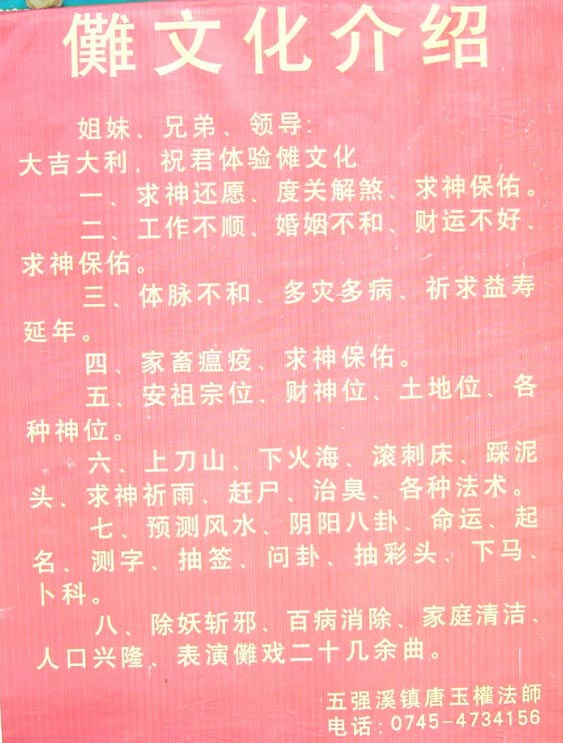 儺文化介绍
姐妹、兄弟、领导:
大吉大利，祝君体验傩文化
一、求神还愿、度关解煞、求神保佑。
二、工作不顺、婚姻不和、财运不好、
求神保佑。
三、体脉不和、多灾多病、祈求益寿
延年。
四、家畜瘟疫、求神保佑。
五、安祖宗位、财神位、土地位、各
种神位。
六、上刀山、下火海、滚刺床、踩泥
头、求神祈雨、赶尸、治臭、各种法术。
七、预测风水、阴阳八卦、命运、起
名、测字、抽签、问卦、抽彩头、下马、
卜科。
八、除妖斩邪、百病消除、家庭清洁、
人口兴隆、表演儺戏二十几余曲。
五强溪镇唐玉權法師
电话:0745-4734156